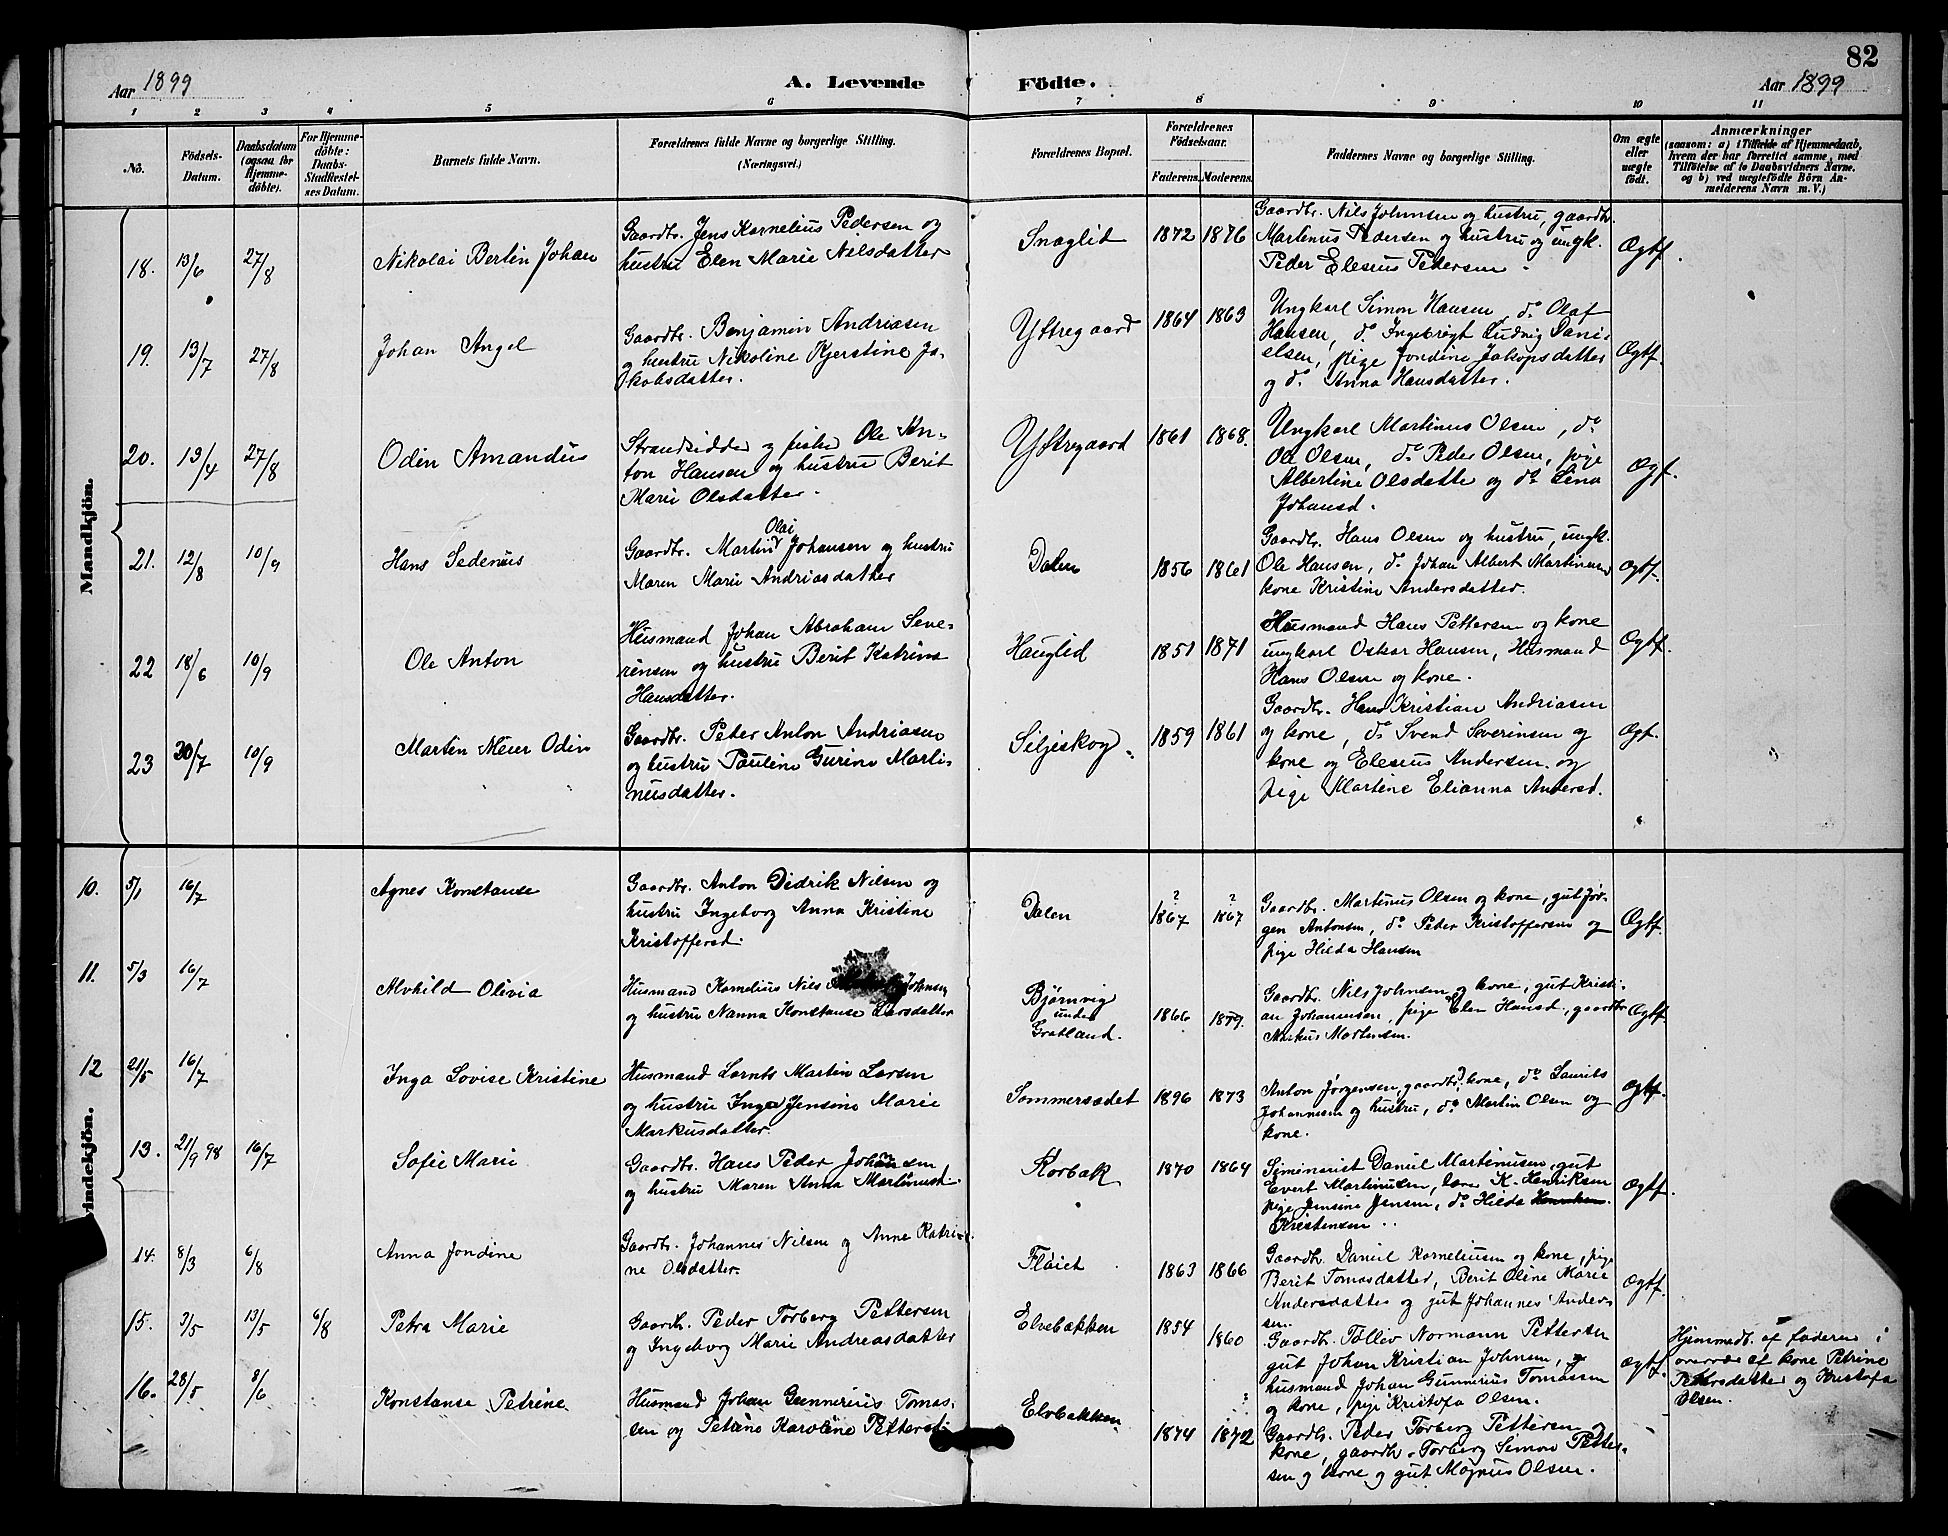 82
Aar 1899
A. Levende Födte.
Aar 1899
1 2 3 4 5 6 7 8 9 10 11
No.
Födsels-Datum.
Daabsdatum (ogsaa for Hjemme-döbte).
For Hjemme-döbte: Daabs-Stadfæstel-ses Datum.
Barnets fulde Navn.
Forældrenes fulde Navne og borgerlige Stilling.
(Næringsvei.)
Forældrenes Bopæl.
Forældrenes Födselsaar.
Faderens. Moderens.
Faddernes Navne og borgerlige Stilling.
Om ægte eller uægte født.
Anmærkninger
(saasom: a) i Tilfælde af Hjemmedaab,
hvem der har forrettet samme, med
Tilföielse af to Daabsvidners Navne.
og b) ved uægtefödte Börn An-
melderens Navn m. V.)
Mandkjön.
18. 13/6 27/8 Nikolai Bertin Johan
Gaardbr. Jens Kornelius Pedersen og
hustru Elen Marie Nilsdatter
Snæglid 1872 1876
Gaardbr. Nils Johnsen og hustru, gaardbr.
Martinus Pedersen og hustru og ungk.
Peder Elesius Pedersen.
Ægtf.
19. 13/7 27/8 Johan Angel
Gaardbr. Benjamin Andriasen
og hustru Nikoline Kjerstine Ja-
kobsdatter.
Yttregaard 1864 1863
Ungkarl Simon Hansen, do Olaf
Hansen, do Ingebrigt Ludvig Dani-
elsen, pige Jondine Jakopsdatter
og do. Anna Hansdatter.
Ægtf.
20. 19/4 27/8 Odin Amandus
Strandsidder og fisker Ole An-
ton Hansen og hustru Berit
Marie Olsdatter.
Yttregaard 1861 1868.
Ungkarl Martinus Olsen, do
Ole Olsen, do Peder Olsen, pige
Albertine Olsdatte og do Lina
Johansd.
Ægf.
21. 12/8 10/9 Hans Sedenius
Gaardbr. Martin Olai Johansen og hustru
Maren Marie Andriasdatter
Dalen 1856 1861
Gaardbr. Hans Olsen og hustru, ungk.
Ole Hansen, do Johan Albert Martinsen
kone Kristine Andersdatter.
Ægtf.
22 18/6 10/9 Ole Anton
Husmand Johan Abraham Seve-
rinsen og hustru Berit Katrina
Hansdatter.
Hauglid 1851 1871
Husmand Hans Pettersen og kone
ungkarl Oskar Hansen, Husmand
Hans Olsen og kone.
Ægtf.
23 20/7 10/9 Martin Meier Odin
Gaardbr. Peter Anton Andriasen
og hustru Pauline Gurine Marti-
nusdatter.
Seljeskog. 1859 1861
Gaardbr. Hans Kristian Andriasen
og kone, do Svend Severinsen og
kone og Elesius Andersen og
pige Martine Elianna Andersd.
Ægt.
Kvindekjön.
10. 5/1 16/7 Agnes Konstanse
Gaardbr. Anton Didrik Nilsen og
hustru Ingeborg Anna Kristine
Kristoffersd.
Dalen ? 1867 ? 1867
Gaardbr. Martinus Olsen og kone, gut Jør-
gen Antonsen, do Peder Kristoffersen og
pige Hilda Hansen
Ægtf.
11. 5/3 16/7 Alvhild Olivia
Husmand Kornelius Nils Johnsen
og hustru Nanna Konstanse Larsdatter
Bjørnvig under Grotland. 1866 1879.
Gaardbr. Nils Johnsen og kone, gut Kristi-
an Johannsen, pige Elen Hansd, gaardbr.
Markus Mortensen.
Ægtf
12 21/5 16/7 Inga Lovise Kristine
Husmand Lornts Martin Larsen
og hustru Inga Jensine Marie
Markusdatter.
Sommersædet 1896 1873
Anton Jørgensen, gaardbr. kone, do Laurits
Johannesen og hustru, do Martin Olsen og
kone.
Ægtf.
13. 21/9 98 16/7 Sofie Marie
Gaardbr. Hans Peder Johansen
og hustru Maren Anna Martinusd.
Korbak 1870 1864
Seminarist Daniel Martinusen, gut
Evert Martinusen, lærer K. Henriksen
pige Jensine Jensen, do Hilda
Kristensen
Ægtf.
14. 8/3 6/8 Anna Jondine
Gaardbr. Johannes Nilsen og Anne Katri-
ne Olsdatter.
Fløiet 1863 1866
Gaardbr. Daniel Korneliusen og kone, pige
Berit Tomasdatter, Berit Oline Marie
Andersdatter og gut Johannes Anders-
sen.
Ægtf.
15. 3/5 13/5 6/8 Petra Marie
Gaardb. Peder Torberg Pettersen
og Ingeborg Marie Andreasdatter
Elvebakken 1854 1860
Gaardbr. Tolliv Normann Pettersen
gut Johan Kristian Johnsen,
husmand Johan Gunnerius Tomassen
og kone, pige Kristofa Olsen.
Ægtf.
Hjemmedb. af faderen i
overvær af kone Petrine
Pettersdatter og Kristofa
Olsen.
16. 28/5 8/6 Konstanse Petrine
Husmand Johan Gunnerius Tomas-
sen og Petrine Karoline Pettersd.
Elvbakken 1874 1872
Gaardb. Peder Torberg Pettersen og
kone, gaardb. Torberg Simon Petter-
sen og kone og gut Magnus Olsen.